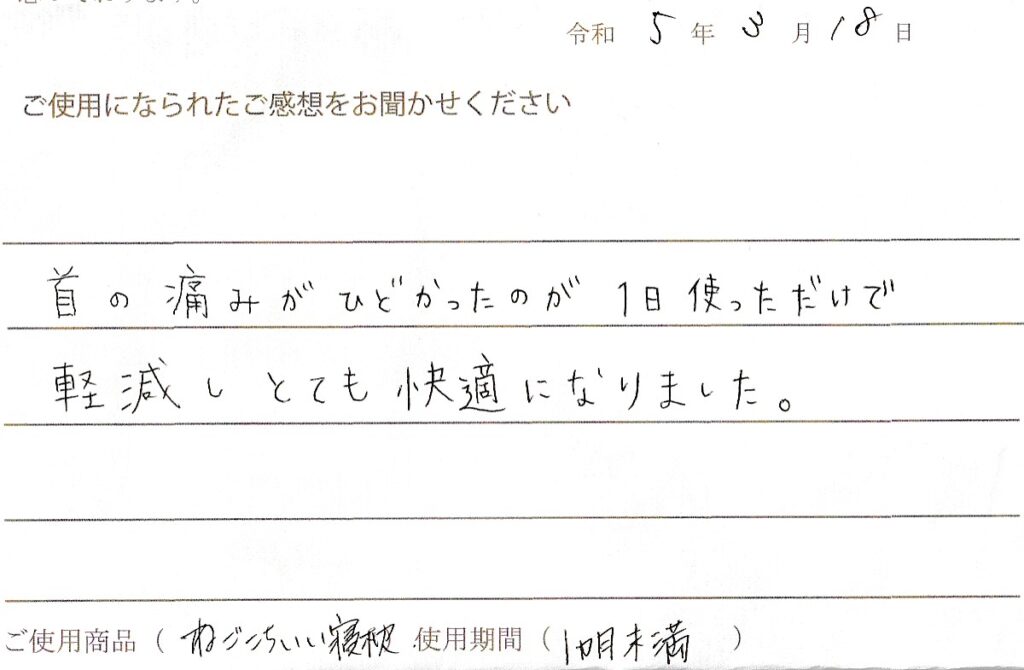 令和 5 年 3 月 18 日
ご使用になられたご感想をお聞かせください
首の痛みがひどかったのが 1日使っただけで
軽減しとても快適になりました。
ご使用商品( ねごこちいい寝枕 使用期間( 1ヵ月未満 )